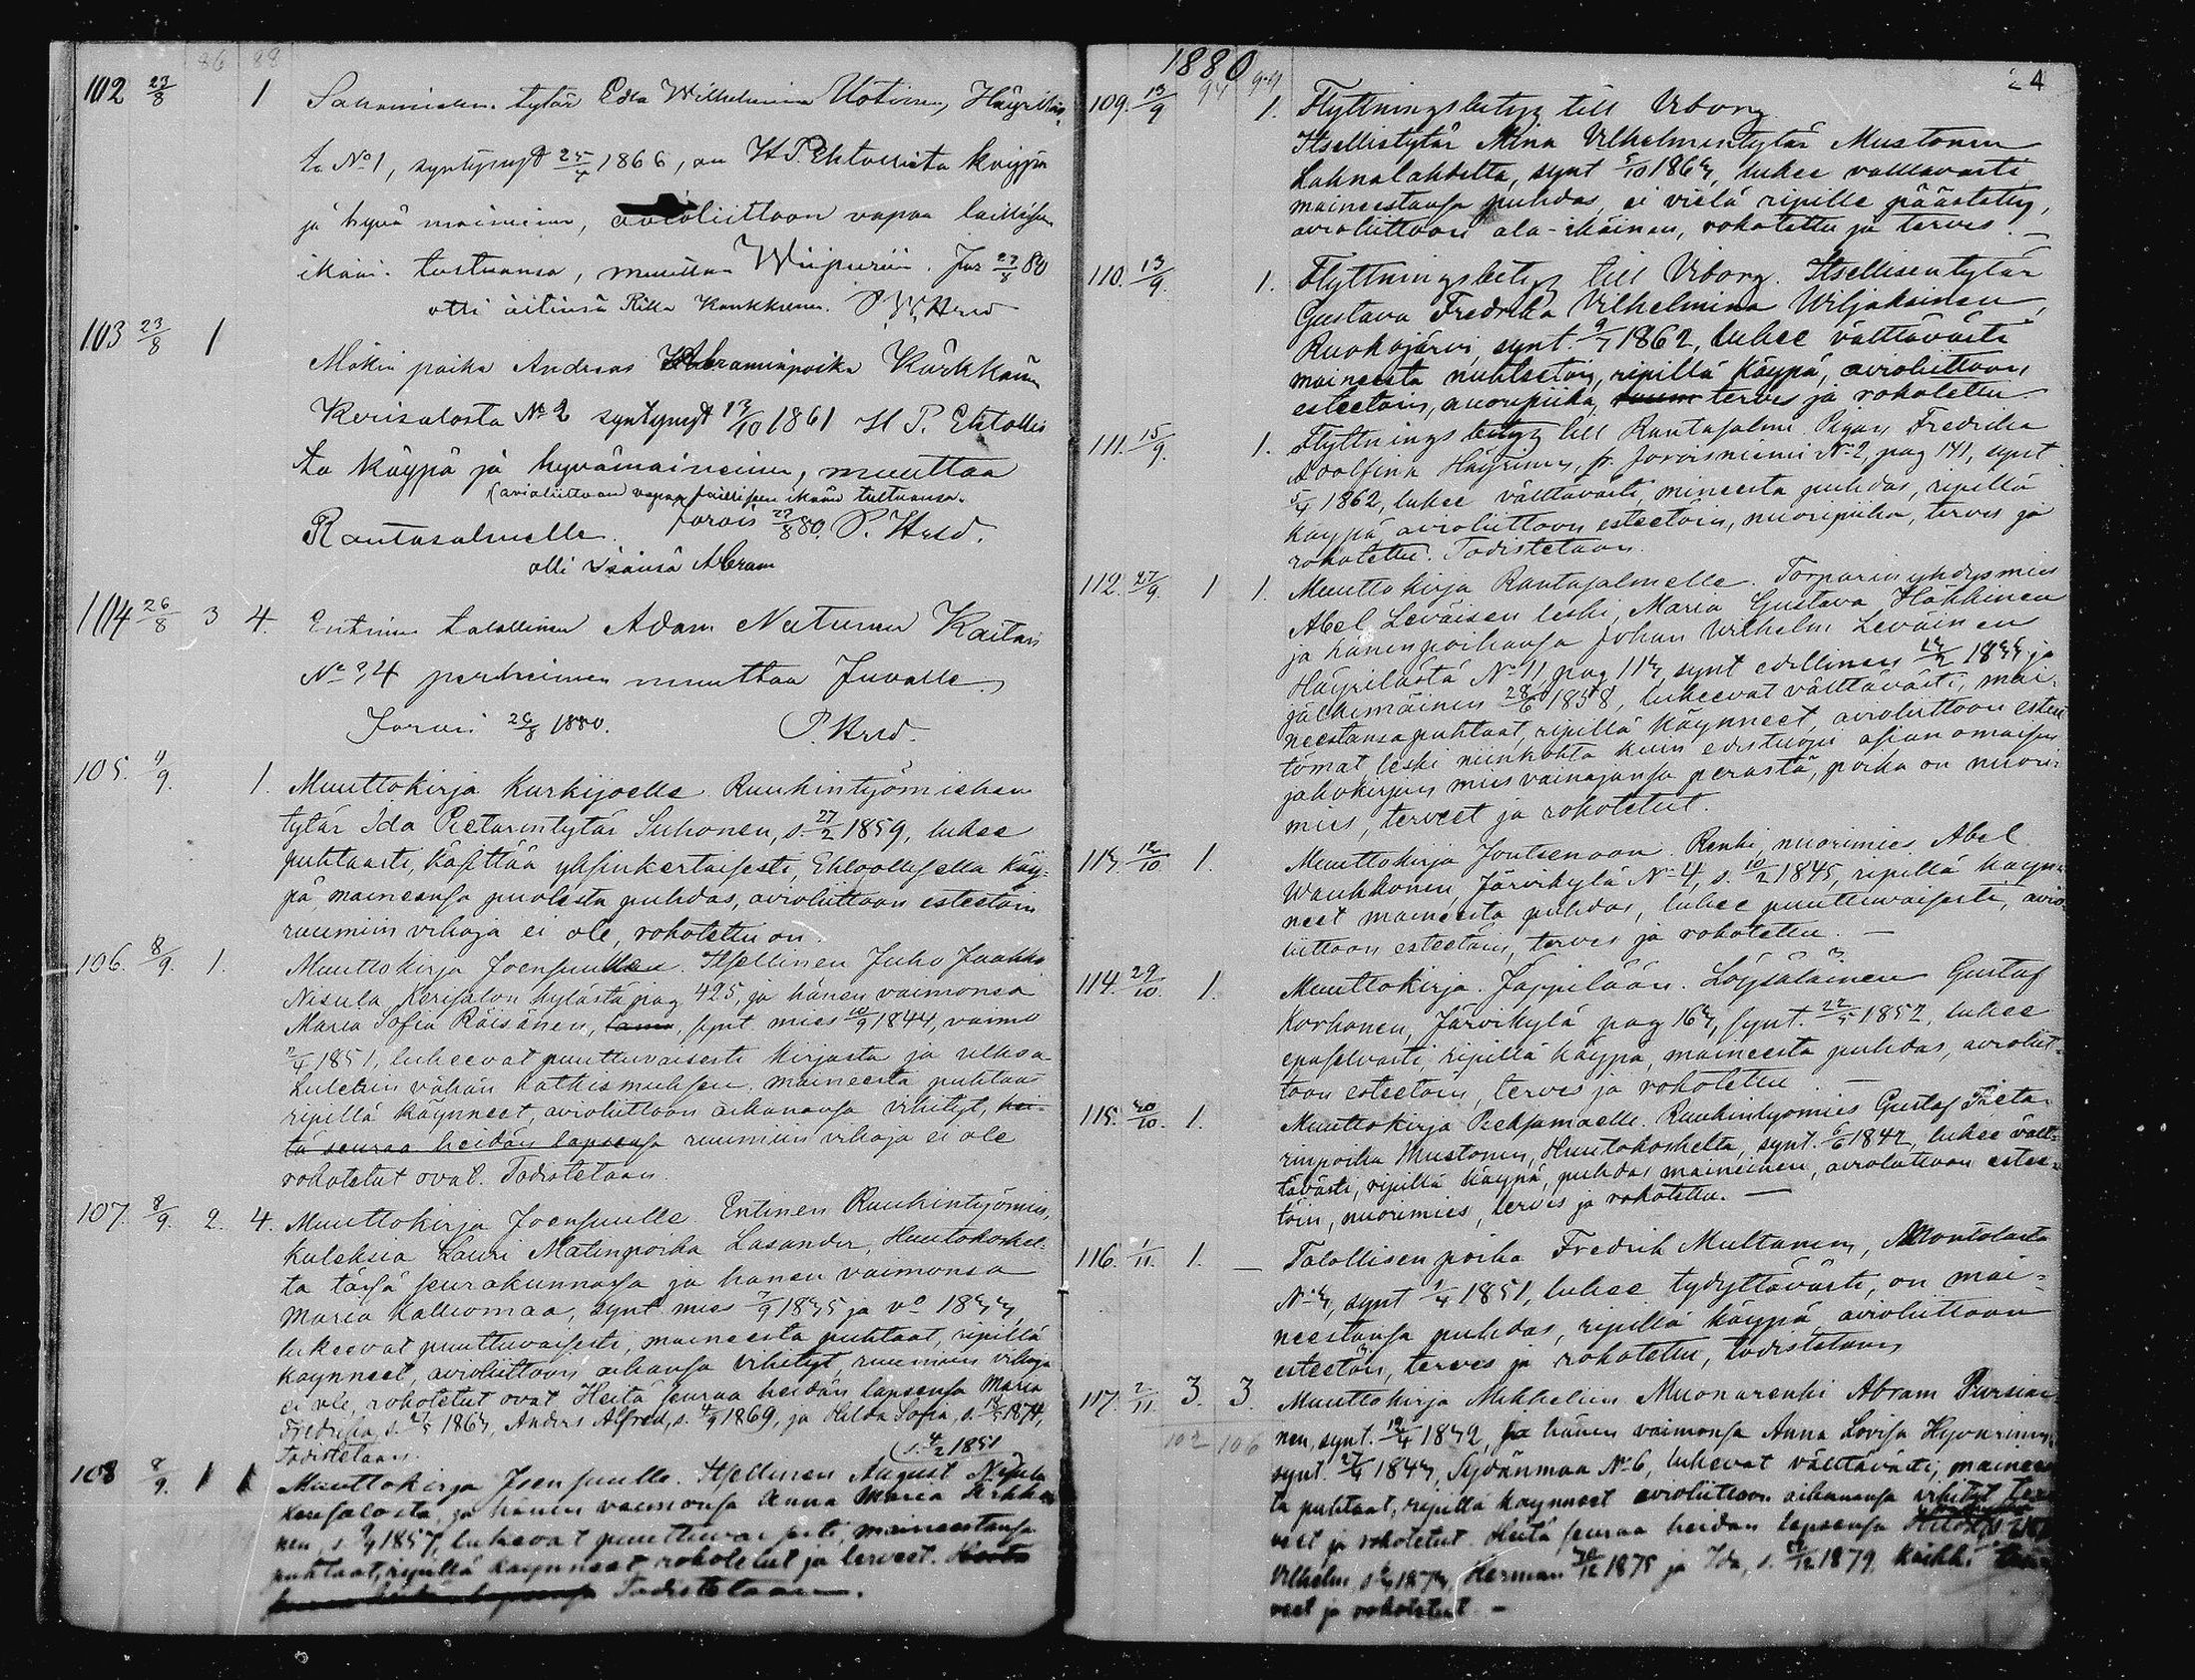 86 88
102 23/8 1 tytär Edla Wilhelmina Uotinen, Häyriläs-
ta No 1, syntynyt 25/4 1866, on H. P. Ehtoollista käypä
ja hyvä maineinen, avioliittoon vapaa laillisen
ikään tultuansa, muuttaa Wiipuriin. Jor 27/8 80
otti äitinsä Riikka Kankkunen. P. W. Hrld
103 23/8 1
Mökin poika Andreas Abraminpoika Kärkkäinen
Kerisalosta No 2 syntynyt 13/10 1861 H. P. Ehtollis
ta käypä ja hyvämaineinen, muuttaa
(avioliittoon vapaa laillisen ikään tultuansa.
Rantasalmelle. Jorois 27/8 80. P. Hrld.
otti isänsä Abram
104 26/8 3 4. Entinen talollinen Adam Neutunen Kaitais
No 34 perheineen muuttaa Juvalle.
Jorois 26/8 1880. P. Hrld.
105. 4/9. 1. Muuttokirja Kurkijoelle. Ruukintyömiehen
tytär Ida Pietarintytär Suhonen, s. 27/2 1859, lukee
puhtaasti, käsittää yksinkertaisesti, Ehtoollisella käy-
pä, maineensa puolesta puhdas, avioliittoon esteetöin
ruumiin vikoja ei ole, rokotettu on.
106. 8/9. 1. Muuttokirja Joensuuhun. Itsellinen Juho Jaakko
Nisula, Kerisalon kylästä pag 425, ja hänen vaimonsa
Maria Sofia Räisänen, synt mies 10/9 1844, vaimo
2/4 1851, lukeevat puuttuvaisesti kirjasta ja ulkoa
kulekin vähän katkismuksen. maineesta puhtaat
ripillä käynneet, avioliittoon aikanansa vihityt, hei-
tä seuraa heidän lapsensa ruumiin vikoja ei ole
rokotetut ovat. Todistetaan.
107. 8/9. 2. 4. Muuttokirja Joensuulle. Entinen Ruukintyömies,
kuleksia Lauri Matinpoika Lasander, Huutokoskel-
ta tässä seurakunnassa ja hänen vaimonsa
Maria Kalliomaa, synt. mies 7/9 1835 ja vo 1833,
lukeevat puuttuvaisesti, maineesta puhtaat, ripillä
käynneet, avioliittoon aikansa vihityt, ruumiin vikoja
ei ole, rokotetut ovat Heitä seuraa heidän lapsensa Maria
Fredrika, s. 1863, Anders Alfred, s. 4/9 1869, ja Hilda Sofia, s. 1874,
Todistetaan.
(s. 4/2 1851
108 8/9. 1 1 Muuttokirja Joensuulle. Itsellinen August Nisula
Kerisalosta, ja hänen vaimonsa Anna Maria Hirkko
nen, s. 1857, lukevat puuttuvaisesti, maineestansa
puhtaat, ripillä käynneet rokotetut ja terveet. Heitä
Todistetaan.
1880 24
94 94
109. 13/9 1. Flyttningsbetyg till Viborg.
Itsellistytär Mina Vilhelmintytär Mustonen
Lahnalahdelta, synt 5/10 1863, lukee välttävästi
maineestansa puhdas, ei vielä ripille päästetty,
avioliittoon ala-ikäinen, rokotettu ja terves. —
110. 13/9. 1. Flyttningsbetyg till Viborg. Itsellisentytär
Gustava Fredrika Vilhelmina Wiljakainen,
Ruokojärvi, synt. 9/7 1862, lukee välttävästi
maineesta nuhteetoin, ripillä käypä, avioliittoon
esteetoin, nuoripiika, terves ja rokotettu
111. 15/9. 1. Flyttningsbetyg till Rantasalmi Pigan Fredrika
Adolfina Häyrinen, fr. Joroisniemi No 2, pag 141, synt
5/4 1862, lukee välttävästi, mineesta puhdas, ripillä
käypä avioliittoon esteetöin, nuoripiika, terves ja
rokotettu. Todistetaan.
112. 27/9. 1 1. Muuttokirja Rantasalmelle. Torparin yhdysmies
Abel Leväisen leski, Maria Gustava Häkkinen
ja hänen poikansa Johan Vilhelm Leväinen
Häyrilästä No 11, pag 113, synt edellinen 1833 ja
jälkimäinen 28/6 1858, lukeevat välttävästi, mai-
neestansa puhtaat, ripillä käynneet, avioliittoon estee
tömat leski niinkohta kuin edistuopi asian omaisen
jakokirjan miesvainajansa perästä, poika on nuori-
mies, terveet ja rokotetut.
113. 12/10 1. Muuttokirja Joutsenoon. Renki, nuorimies Abel
Waukkonen, Järvikylä No 4, s. 10/2 1845, ripillä käyn-
neet maineesta puhdas, lukee puuttuvaisesti, avio-
liittoon esteetöin, terves ja rokotettu. —
114. 29/10. 1. Muuttokirja. Jäppilään. Loisäläinen Gustaf
Korhonen, Järvikylä pag 163, synt. 22/5 1852, lukee
epäselvästi, ripillä käypä, maineesta puhdas, avioliit-
toon esteetöin, terves ja rokotettu. —
115. 30/10. 1. Muuttokirja Pieksämäelle. Ruukintyömies Gustaf Pieta-
rinpoika Mustonen, Huutokoskelta, synt. 6/6 1842, lukee vält-
tävästi, ripillä käypä, puhdas maineinen, avioliittoon estee-
töin, nuorimies, terves ja rokotettu. —
116. 1/11. 1. — Talollisen poika Fredrik Multanen, Montolasta
No 3, synt 1/4 1851, lukee tydyttävästi, on mai-
neestansa puhdas, ripillä käypä, avioliittoon
esteetöin, terves ja rokotettu, todistetaan
117. 2/11. 3. 3. Muuttokirja Mikkeliin Muonarenki Abram Pursiai-
102 106 nen, synt. 19/4 1842, ja hänen vaimonsa Anna Lovisa Hyvärinen,
synt. 27/4 1843, Sydänmaa No 6, lukevat välttävästi, mainees-
ta puhtaat, ripillä käynneet avioliittoon aikanansa vihityt ter
veet ja rokotetut. Heitä seuraa heidän lapsensa
Vilhelm, s. 1873, Herman 30/12 1875 ja Ida, s. 1879. kaikki ter-
veet ja rokotetut —